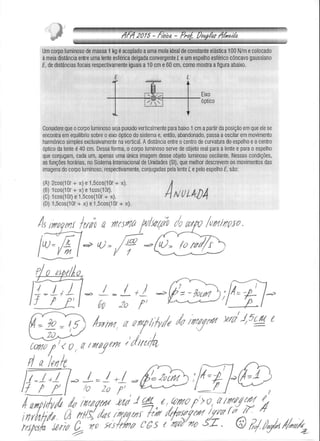 AFA 2015 - Física - Prof. Douglas Almeida
Um corpo luminoso de massa 1 kg é acoplado a uma mola ideal de constante elástica 100 N/m e colocado
à meia distância entre uma lente esférica delgada convergente L e um espelho esférico côncavo gaussiano
E, de distâncias focais respectivamente iguais a 10 cm e 60 cm, como mostra a figura abaixo.
E L
Eixo
óptico
Considere que o corpo luminoso seja puxado verticalmente para baixo 1 cm a partir da posição em que ele se
encontra em equilíbrio sobre o eixo óptico do sistema e, então, abandonado, passa a oscilar em movimento
harmônico simples exclusivamente na vertical. A distância entre o centro de curvatura do espelho e o centro
óptico da lente é 40 cm. Dessa forma, o corpo luminoso serve de objeto real para a lente e para o espelho
que conjugam, cada um, apenas uma única imagem desse objeto luminoso oscilante. Nessas condições,
as funções horárias, no Sistema Internacional de Unidades (SI), que melhor descrevem os movimentos das
imagens do corpo luminoso, respectivamente, conjugadas pela lente L e pelo espelho E, são:
(A) 2cos(10t + π) e 1,5cos(10t + π).
(B) 1cos(10t + π) e 1cos(10t).
(C) 1cos(10t) e 1,5cos(10t + π).
(D) 1,5cos(10t + π) e 1,5cos(10t + π).
ANULADA
As imagens terão a mesma pulsação do corpo luminoso.
w = √k/m => w = √100/1 => w = 10 rad/s
P/ o espelho
1/f = 1/p + 1/p' => 1/60 = 1/20 + 1/p' => p' = -30cm ; A = -p'/p
A = 30/20 = 1,5 Assim, a amplitude da imagem será 1,5 cm e,
como p' < 0, a imagem é direita
P/ a lente
1/f = 1/p + 1/p' => 1/10 = 1/20 + 1/p' => p' = 20cm ; A = -p'/p => A = -1
A amplitude da imagem será 1 cm e, como p' > 0, a imagem é
resposta seria C, no sistema CGS e não no SI. © Prof. Douglas Almeida